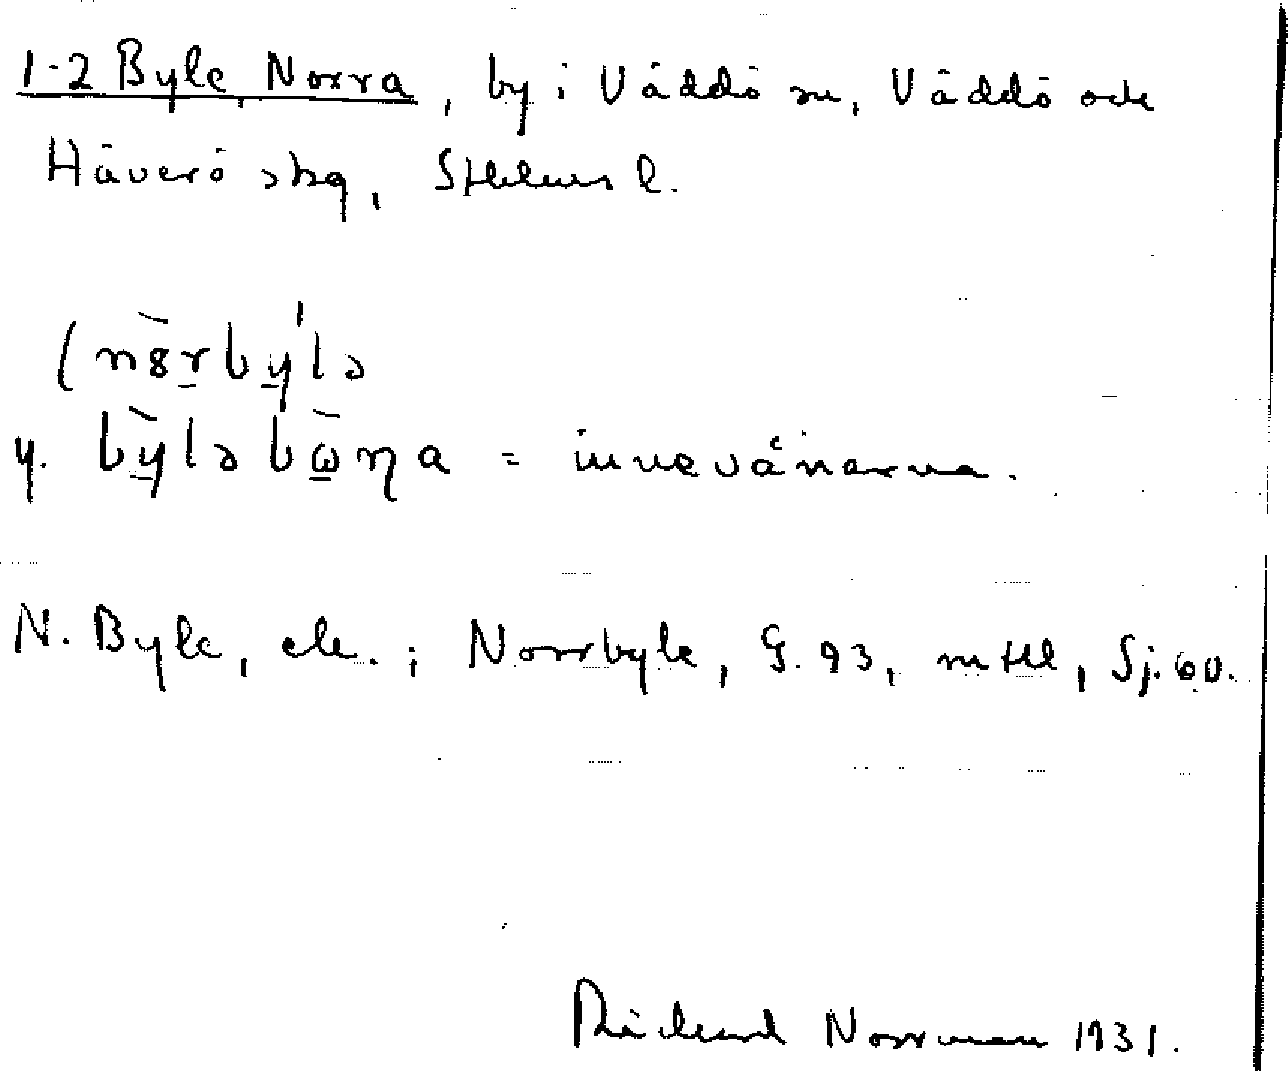 1-2 Byle, Norra, by i Väddö sn, Väddö och
Häverö skg, Sthlms l.
(nȣ̀rbýlə
y. bỳləbὼŋa = innevånarna.
N. Byle, ek.; Norrbyle, G. 93, mtll, Sj. 60.
Rickard Norrman 1931.